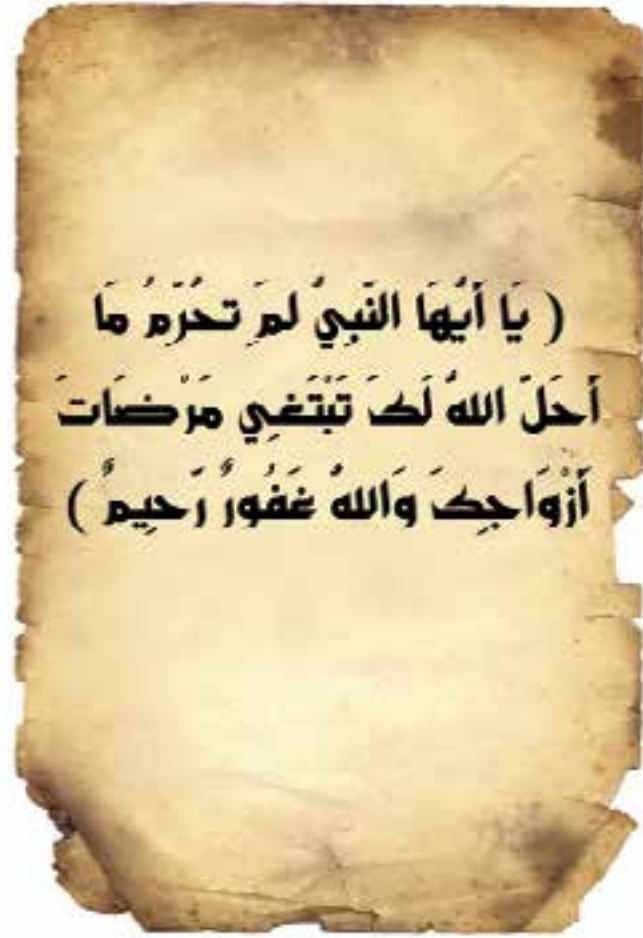 ( يَا أَيُّهَا النَّبِيُّ لِمَ تُحَرِّمُ مَا
أَحَلَّ اللهُ لَكَ تَبْتَغِي مَرْضَاتَ
أَزْوَاجِكَ وَاللهُ غَفُورٌ رَّحِيمٌ )